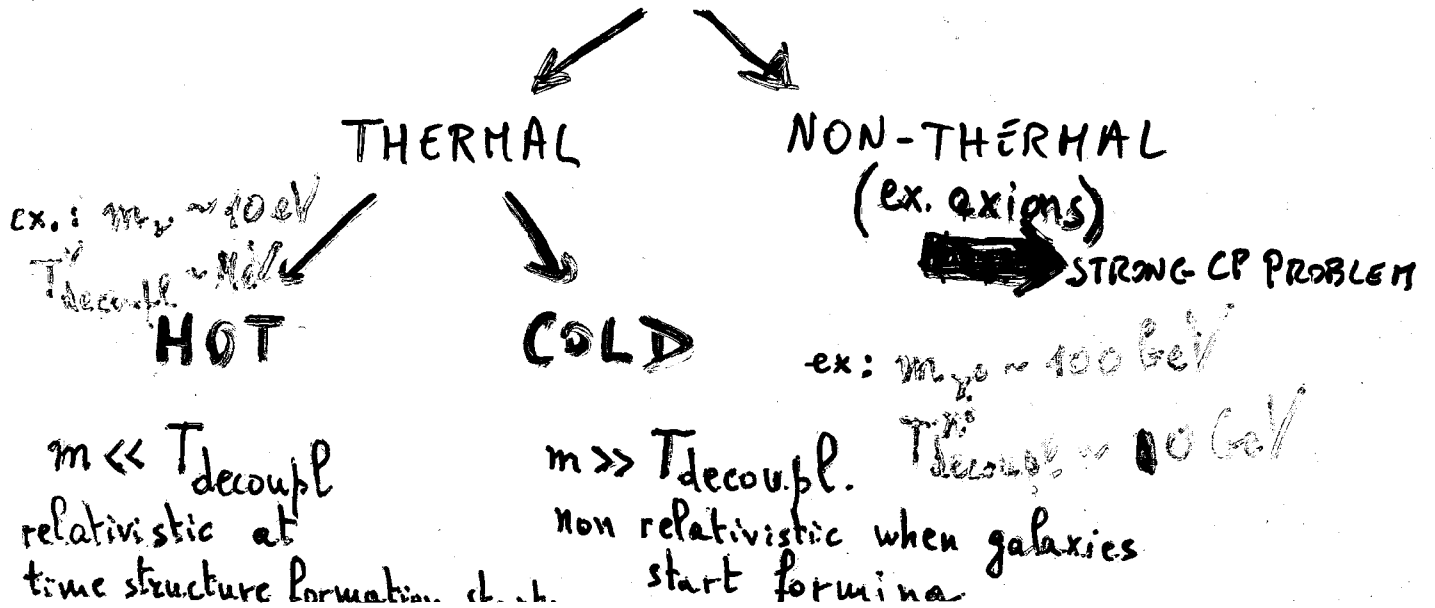 THERMAL
NON-THERMAL
(ex. axions)
STRONG CP PROBLEM
ex.: mν ~ 10 eV
Tνdecoupl ~ MeV
HOT
COLD
ex: mχ0 ~ 100 GeV
Tχ0decoupl. ~ 10 GeV
m << Tdecoupl
relativistic at
time structure formation start
m >> Tdecoupl.
non relativistic when galaxies
start forming